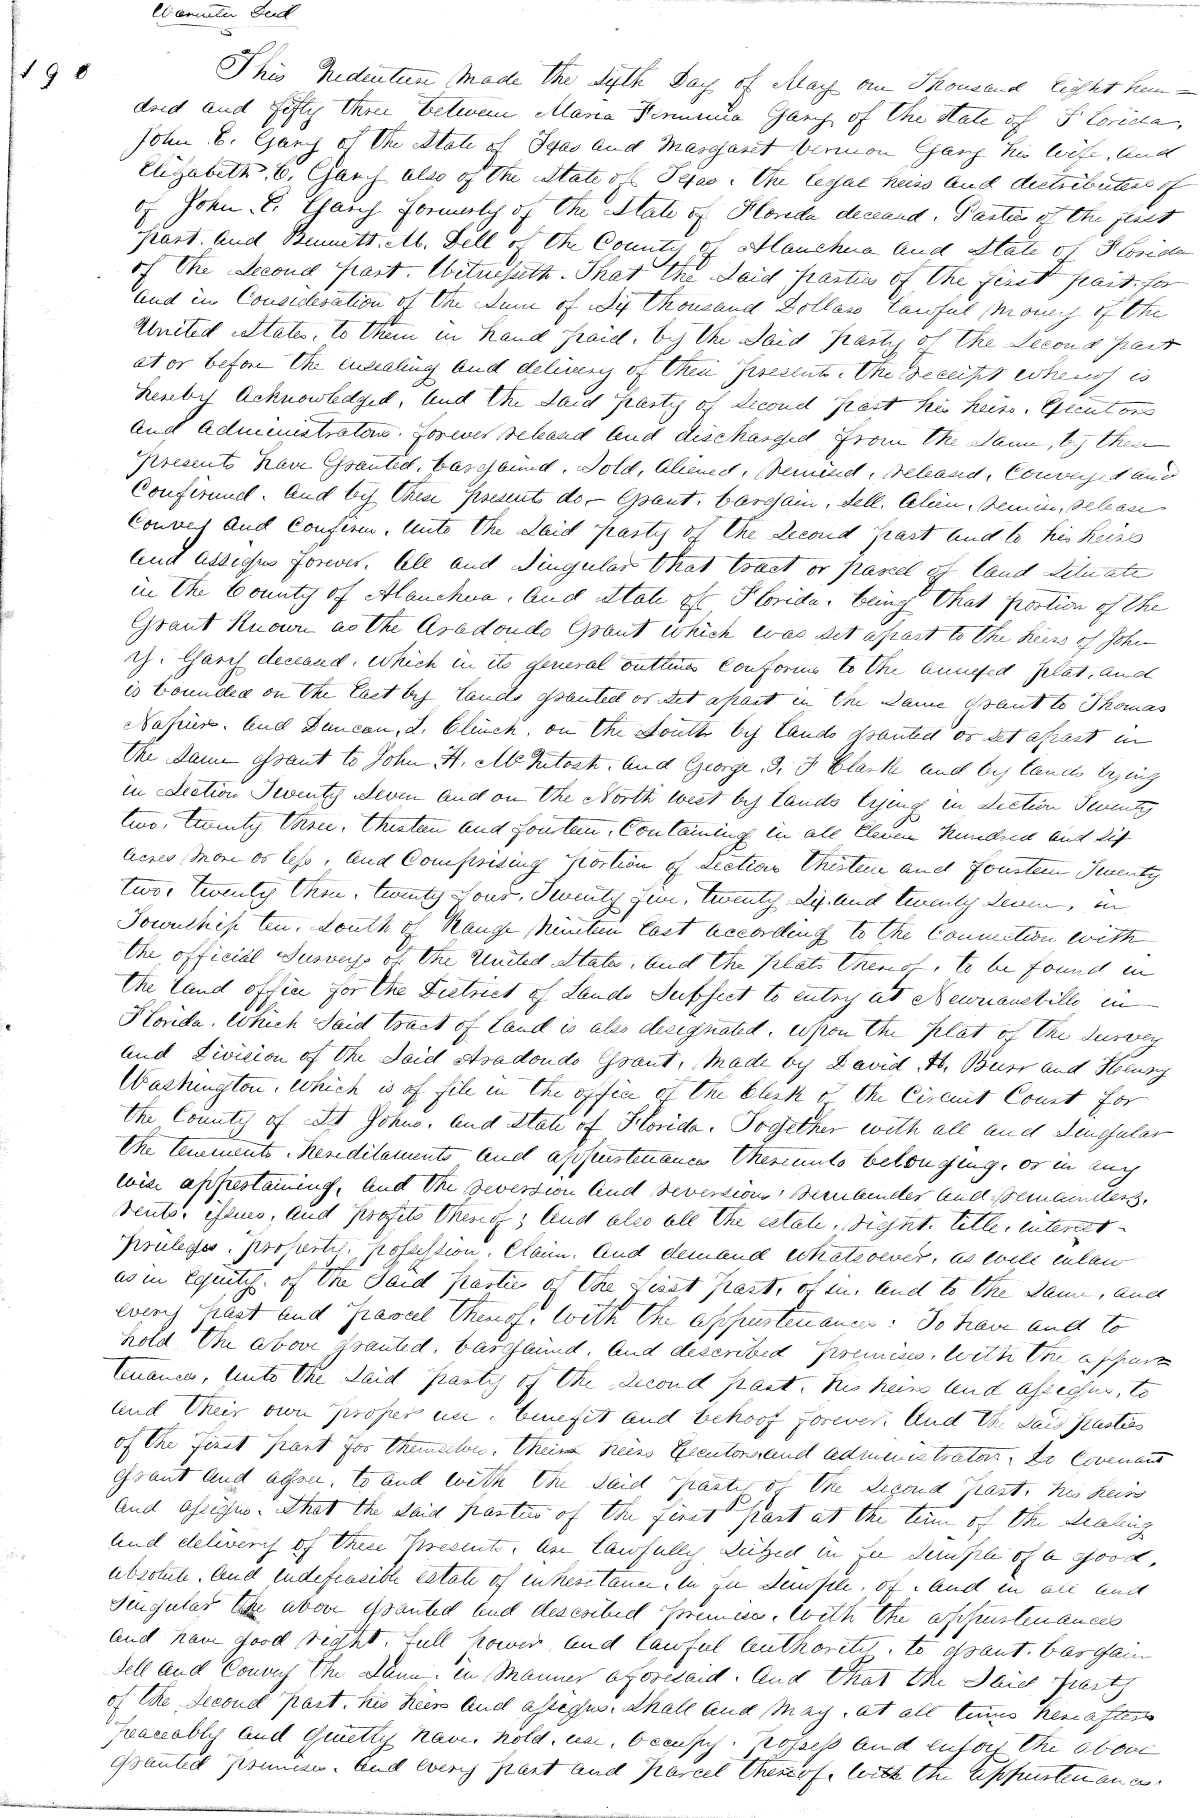 Warrantee Deed
198
This Indenture Made the Sixth Day of May one Thousand Eight hun=
dred and fifty three between Maria Feruinia Gary of the State of Florida,
John E. Gary of the State of Texas and Margaret Vernon Gary his Wife, and
Elizabeth E. Gary also of the State of Texas. the legal heirs and distributees of
of John E. Gary formerly of the State of Florida deceasd. Parties of the first
part. and Bennett. M. Dell of the County of Alauchua and State of Florida
of the Second part. Witnesseth. That the Said parties of the first part, for
and in Consideration of the Sum of Six thousand Dollars lawful Money of the
United States, to them in hand paid, by the Said party of the Second part
at or before the ensealing and delivery of these presents. the receipt whereof is
hereby Acknowledged, and the Said party of Second part his heirs. Executors
and administrators. forever released and discharged from the Same, by these
presents have Granted, bargained. Sold, Aliened, remised, released, Conveyed and
Confirmed. and by these presents do- Grant. bargain. Sell. Alien. remise, release
Convey and Confirm, unto the Said party of the Second part and to his heirs
and assigns forever. All and Singular that tract or parcel of land Situate
in the County of Alauchua. and State of Florida. being that portion of the
Grant Known as the Aradondo Grant which was set apart to the heirs of John
G. Gary deceasd. which in its general outlines Conforms to the annexed plat, and
is bounded on the East by lands granted or set apart in the Same grant to Thomas
Napier. and Duncan, L. Clinch. on the South by lands granted or set apart in
the Same grant to John H. McIntosh. and George. I. F Clarke and by lands lying
in Section Twenty Seven and on the North West by lands lying in Section Twenty
two. twenty three. thirteen and fourteen. Containing in all Eleven hundred and Six
acres more or less. and Comprising portion of Sections thirteen and fourteen Twenty
two. twenty three. twenty four. Twenty five. twenty Six. and twenty Seven. in
Township ten. South of Range Nineteen East according to the Connection with
the official Surveys of the United States. and the plats thereof. to be found in
the land office for the District of Lands Subject to entry at Newnansville in
Florida. which Said tract of land is also designated. upon the plat of the Survey
and Division of the Said Aradondo Grant, Made by David. H. Burr and Henry
Washington. which is of file in the office of the Clerk of the Circuit Court for
the County of St Johns. and State of Florida. Together with all and Singular
the tenements. hereditaments and appurtenances thereunto belonging. or in any
wise appertaining, and the reversion and reversions. remainder and remainders.
rents. issues, and profits thereof; and also all the estate. right. title. interest-
privileges. property. possession. Claim. and demand whatsoever. as well in law
as in Equity. of the Said parties of the first part, of in. and to the Same, and
every part and parcel thereof. with the appurtenances: To have and to
hold the above granted. bargained. and described premises. With the appur=
tenances, unto the Said party of the Second part. his heirs and assigns, to
and their own proper use. benefit and behoof forever. And the said parties
of the first part for themselves. their heirs Executors, and administrators. Do Covenant
grant and agree, to and with the Said party of the Second part. his heirs
and assigns. that the Said parties of the first part at the time of the Sealing
and delivery of these presents. are lawfully Seized in fee Simple of a good.
absolute. and indefeasible estate of inheritance. in fee Simple. of. and in all and
Singular the above granted and described premises. With the appurtenances
and have good right. full power and lawful authority. to grant. bargain
Sell and Convey the Same. in Manner aforesaid. And that the Said party
of the Second part. his heirs and assigns. Shall and May. at all times hereafter
peaceably and Quietly have. hold. use. occupy. possess and enjoy the above
granted premises. and every part and parcel thereof. with the appurtenances.